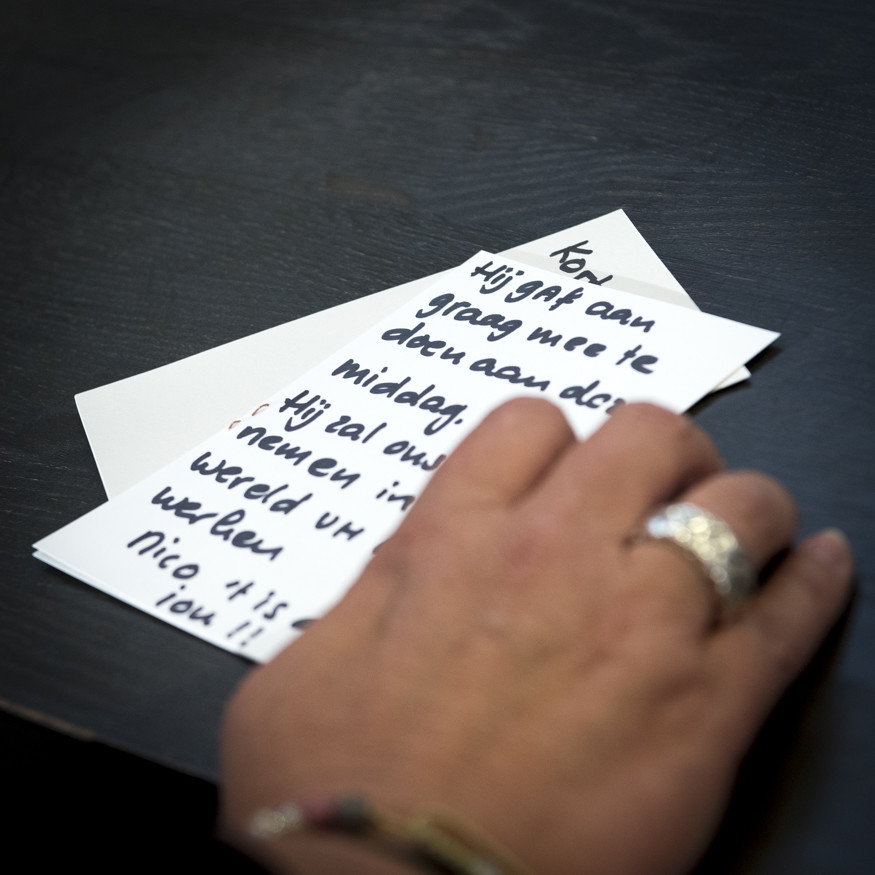 Kon
Hij gaf aan
graag mee te
doen aan dez
middag.
Hij zal ons
nemen in
wereld v/h
werken
nico 't is
jou !!